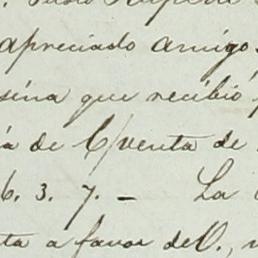 apreciado amigo.
que recibió
de C/venta de
6. 3. 7. — La
ta a favor de V.,